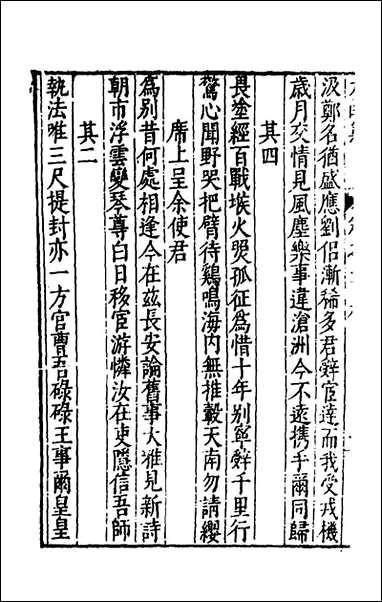 汲鄭名猶盛應劉侶漸稀多君辭宦達而我受戎機
歲月交情見風塵樂事違滄洲今不遠携手爾同歸
其四
畏塗經百戰堠火煚孤征為惜十年別寧辭千里行
驚心聞野哭把臂待鷄鳴海内無推轂天南勿請纓
席上呈余使君
為别昔何處相逢今在兹長安論舊事大雅見新詩
朝市浮雲變琴尊白日移宦游憐汝在吏隱信吾師
其二
執法唯三尺提封亦一方官曹吾碌碌王事爾皇皇